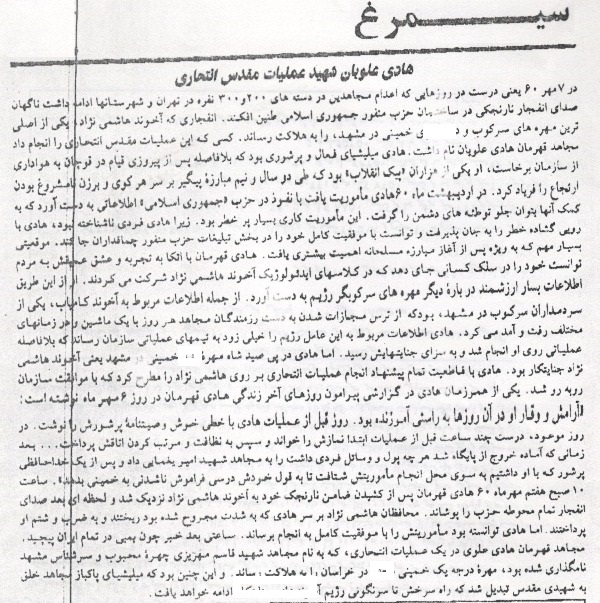 سیـمرغ
هادی علویان شهید عملیات مقدس انتحاری
در ۷ مهر ۶۰ یعنی درست در روزهایی که اعدام مجاهدین در دسته های ۲۰۰و۳۰۰ نفره در تهران و شهرستانها ادامه داشت ناگهان
صدای انفجار نارنجکی در ساختمان حزب منفور جمهوری اسلامی طنین افکند. انفجاری که آخوند هاشمی نژاد، یکی از اصلی
ترین مهره های سرکوب و د خمینی در مشهد، را به هلاکت رساند. کسی که این عملیات مقدس انتحاری را انجام داد
مجاهد قهرمان هادی علویان نام داشت. هادی میلیشیای فعال و پرشوری بود که بلافاصله پس از پیروزی قیام در قوچان به هواداری
از سازمان برخاست، او یکی از هزاران «پیک انقلاب» بود که طی دو سال و نیم مبارزهٔ پیگیر بر سر هر کوی و برزن نامشروع بودن
ارتجاع را فریاد کرد. در اردیبهشت ماه ۶۰ هادی مأموریت یافت با نفوذ در حزب «جمهوری اسلامی» اطلاعاتی به دست آورد که به
کمک آنها بتوان جلو توطئه های دشمن را گرفت. این مأموریت کاری بسیار پر خطر بود. زیرا هادی فردی ناشناخته نبود، هادی با
رویی گشاده خطر را به جان پذیرفت و توانست با موفقیت کامل خود را در بخش تبلیغات حزب منفور چماقداران جا کند. موقعیتی
بسیار مهم که به ویژه پس از آغاز مبارزه مسلحانه اهمیت بیشتری یافت. هادی قهرمان با اتکا به تجربه و عشق عمیقش به مردم
توانست خود را در سلک کسانی جای دهد که در کلاسهای ایدئولوژیک آخوند هاشمی نژاد شرکت می کردند. او از این طریق
اطلاعات بسار ارزشمند در بارهٔ دیگر مهره های سرکوبگر رژیم به دست آورد. از جمله اطلاعات مربوط به آخوند کامیاب، یکی از
سردمداران سرکوب در مشهد، بودکه از ترس مجازات شدن به دست رزمندگان مجاهد هر روز با یک ماشین و در زمانهای
مختلف رفت و آمد می کرد. هادی اطلاعات مربوط به این عامل رژیم را خیلی زود به تیمهای عملیاتی سازمان رساند که بلافاصله
عملیاتی روی او انجام شد و به سزای جنایتهایش رسید. اما هادی در پی صید شاه مهرهٔ خمینی در مشهد یعنی آخوند هاشمی
نژاد جنایتکار بود. هادی با قاطعیت تمام پیشنهاد انجام عملیات انتحاری بر روی هاشمی نژاد را مطرح کرد که با موافقت سازمان
روبه رو شد. یکی از همرزمان هادی در گزارشی پیرامون روزهای آخر زندگی هادی قهرمان در روز ۶ مهر ماه نوشته است:
«آرامش و وقار او در آن روزها به راستی آموزنده بود. روز قبل از عملیات هادی با خطی خوش وصیتنامهٔ پرشورش را نوشت. در
روز موعود، درست چند ساعت قبل از عملیات ابتدا نمازش را خواند و سپس به نظافت و مرتب کردن اتاقش پرداخت... بعد
زمانی که آماده خروج از پایگاه شد هر چه پول و وسائل فردی داشت را به مجاهد شهید امیر یغمایی داد و پس از یک خداحافظی
پرشور که با او داشتیم به سوی محل انجام مأموریتش شتافت تا به قول خودش درسی فراموش ناشدنی به خمینی بدهد». ساعت
۱۰ صبح هفتم مهرماه ۶۰ هادی قهرمان پس از کشیدن ضامن نارنجک خود به آخوند هاشمی نژاد نزدیک شد و لحظه ای بعد صدای
انفجار تمام محوطه حزب را پوشاند. محافظان هاشمی نژاد بر سر هادی که به شدت مجروح شده بود ریختند و به ضرب و شتم او
پرداختند. اما هادی توانسته بود مأموریتش را با موفقیت کامل به انجام برساند. ساعتی بعد خبر چون بمبی در تمام ایران پیچید.
مجاهد قهرمان هادی علوی در یک عملیات انتحاری، که به نام مجاهد شهید قاسم مهریزی چهرهٔ محبوب و سرشناس مشهد
نامگذاری شده بود، مهرهٔ درجه یک خمینی در خراسان را به هلاکت رساند. و این چنین بود که میلیشیای پاکباز مجاهد خلق
به شهیدی مقدس تبدیل شد که راه سرخش تا سرنگونی رژیم ادامه خواهد یافت.